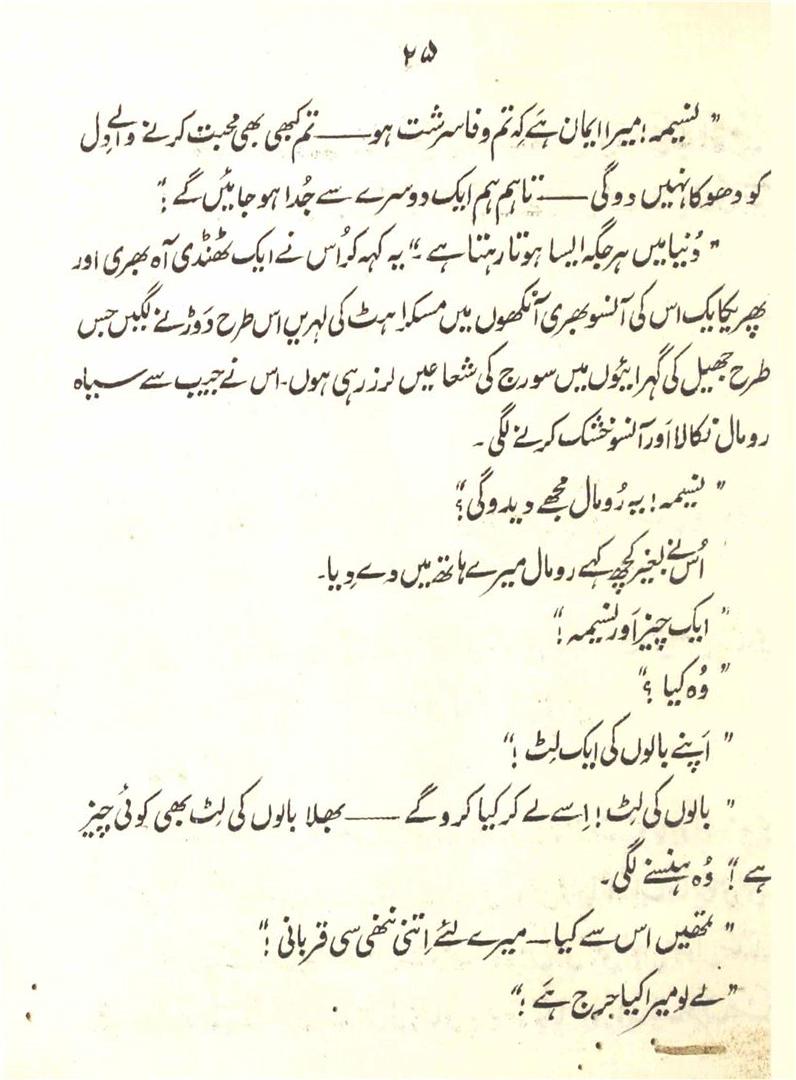 ۲۵
"نسیمہ! میرا ایمان ہے کہ تم وفا سرشت ہو —— تم کبھی بھی محبت کرنے والے دل
کو دھوکا نہیں دوگی —— تاہم ہم ایک دوسرے سے جُدا ہو جائیں گے!"
"دُنیا میں ہر جگہ ایسا ہوتا رہتا ہے۔" یہ کہہ کر اُس نے ایک ٹھنڈی آہ بھری اور
پھر یکایک اس کی آنسو بھری آنکھوں میں مسکراہٹ کی لہریں اس طرح دَوڑنے لگیں جس
طرح جھیل کی گہرایئوں میں سورج کی شعاعیں لرز رہی ہوں۔ اس نے جیب سے سیاہ
رومال نکالا اَور آنسو خشک کرنے لگی۔
"نسیمہ! یہ رُومال مجھے دیدوگی؟"
اُس نے بغیر کچھ کہے رومال میرے ہاتھ میں دے دِیا۔
"ایک چیز اَور نسیمہ!"
"وُہ کیا؟"
"اَپنے بالوں کی ایک لِٹ!"
"بالوں کی لِٹ! اِسے لے کر کیا کروگے —— بھلا بالوں کی لِٹ بھی کوئی چیز
ہے!" وُہ ہنسنے لگی۔
"تمھیں اس سے کیا — میرے لئے اِتنی ننھی سی قربانی!"
"لے لو میرا کیا حرج ہَے!"